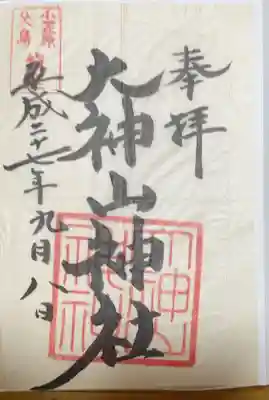 奉拝
大神山神社
小笠原
父島
平成二十七年九月八日